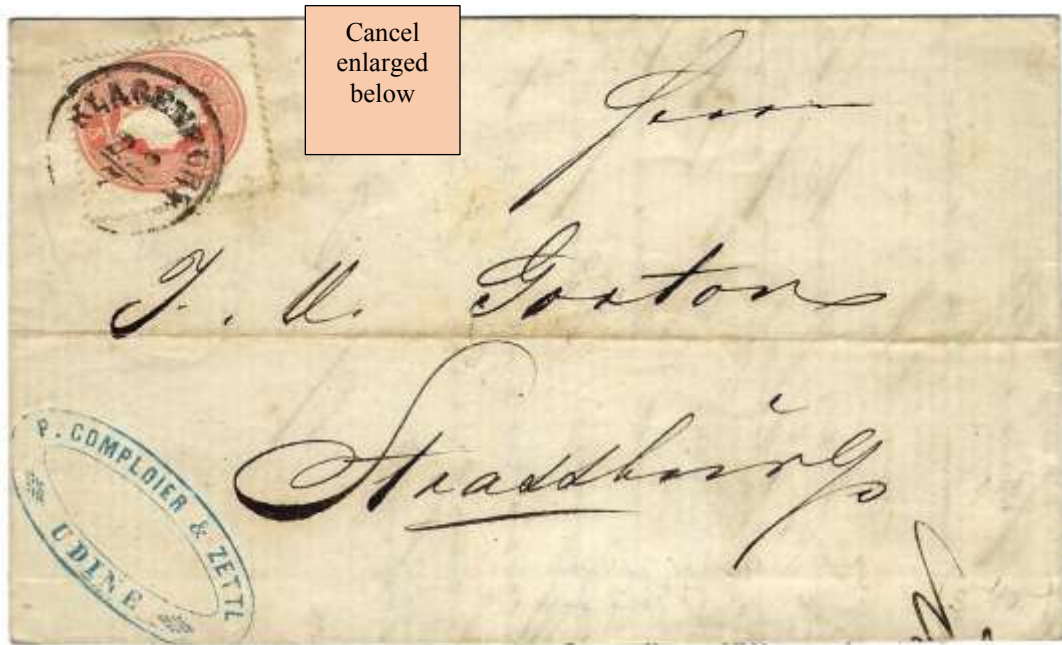 Cancel
enlarged
below
KLAGENFURT
Herrn
J. U. Goxton
Strassburg
P. COMPLOIER & ZETTL
UDINE